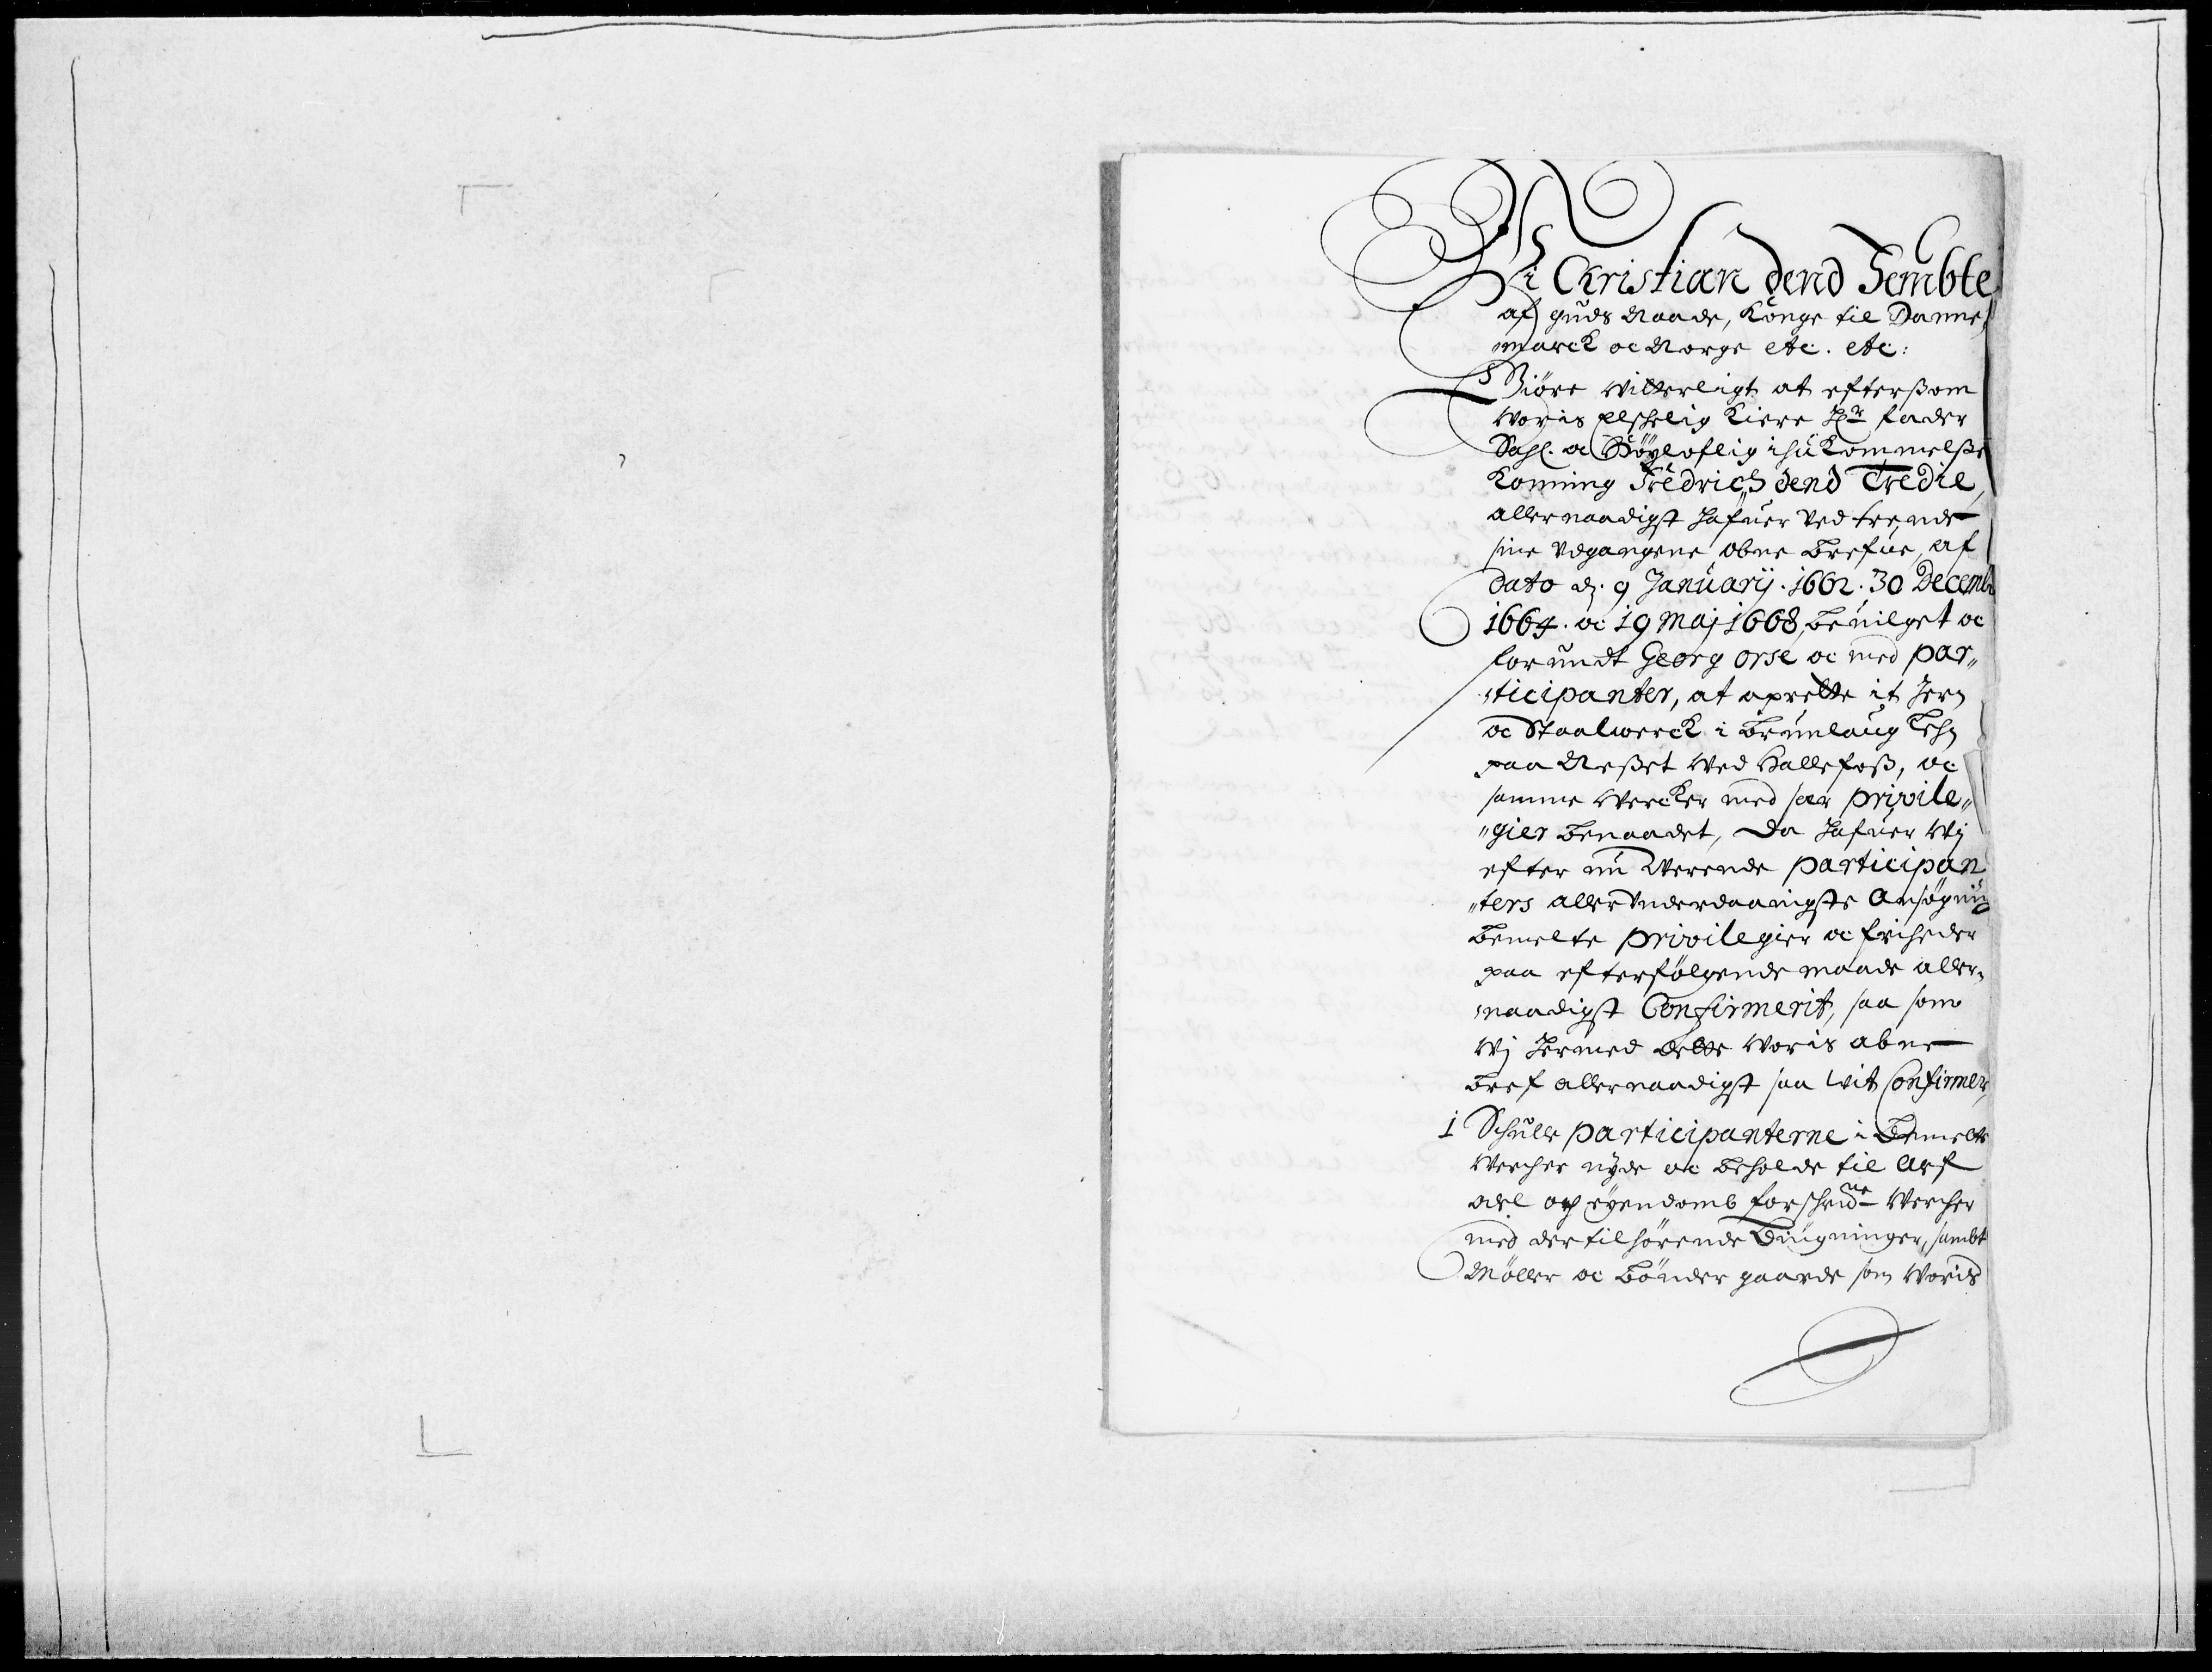 Wi Christian dend Fembte
af Guds Naade, Konge til Danne,
"marck oc Norge etc. etc:
Giöre Witterligt at efterßom
Woris Elschelig Kiere Hr. Fader
Sahl. oc Höyloflig ihukommelße
Konning Fredrich dend Tredie,
allernaadigst hafuer ved trende
sine udgangene obne Brefue, af
dato d. 9 Januarij. 1662. 30 Decemb
1664. oc 19 Maj 1668, Beuilget oc
forundt Georg Orse oc med par„
„ticipanter, at oprette it Jern
oc Staalwerck i Brunlaug Lehn
paa Neßet Wed Hallefoß, oc
samme Wercker med sær privile„
„gier Benaadet, Da hafuer Wj
efter nu Werende participan
„ters allerunderdaanigste Ansøgning
Bemelte privilegier oc friheder
paa efterfølgende maade aller„
„naadigst Confirmerit, saa som
Wj hermed dette Woris obne
Bref allernaadigst saa wit Confirmer,
1 Schulle participanterne i Bemelte
Wercher nyde oc beholde til Arf
oc eyendomb forschrne Wercher
med dertilhörende Biugninger, sambt
Möller oc Bönder gaarde som Woris